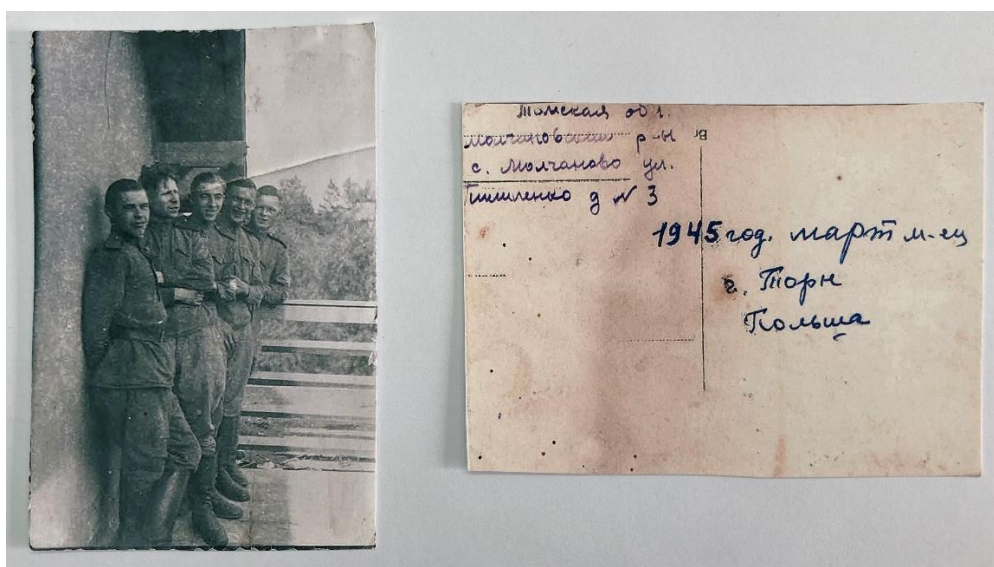 Томская обл.
Молчановский р-н
с. Молчаново ул.
д № 3
1945 год. март м-ец
г. Торн
Польша